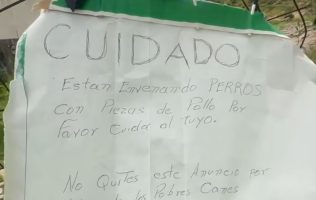 CUIDADO
Estan Envenando PERROS
con Piezas de Pollo Por
Favor Cuida al tuyo.
No Quites este Anuncio por
los Pobres Canes